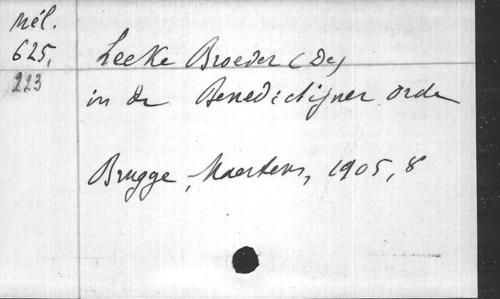 Mél.
625,
223
Leeke Broeder (De)
in de Benedictijner orde
Brugge, Maertens, 1905, 8